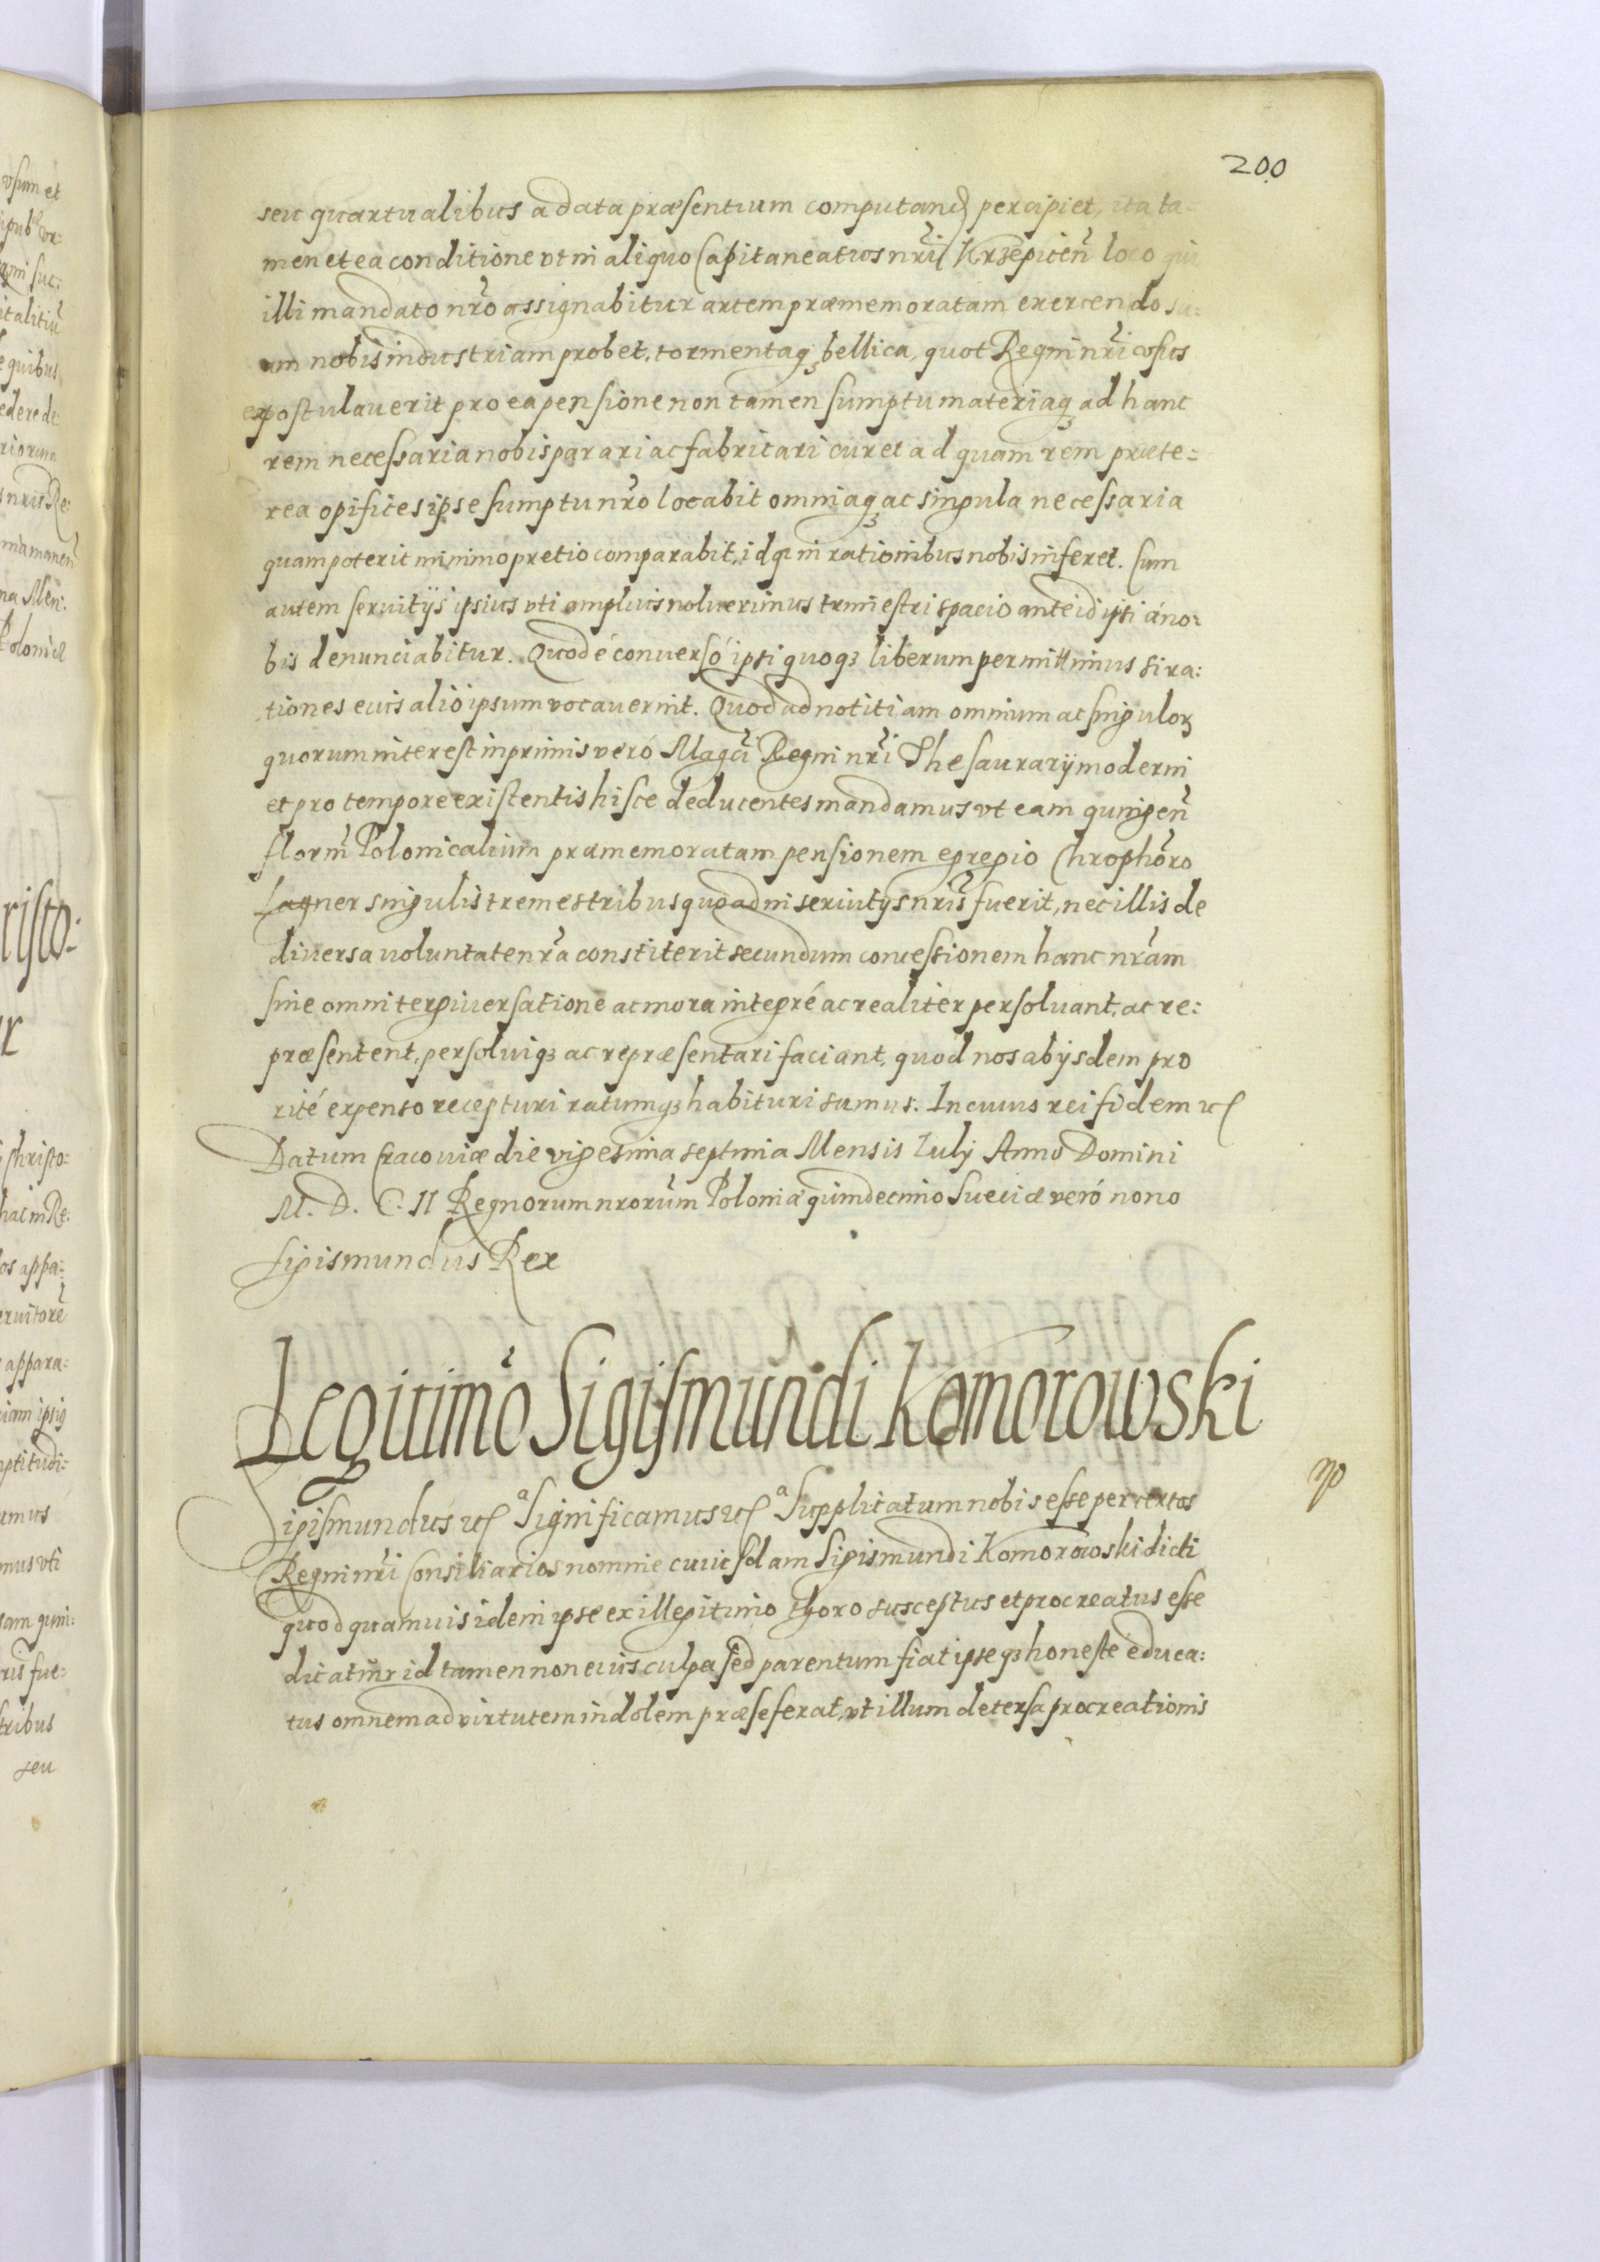 200
seu quartualibus a data præsentium computand percipiet, ita ta-
men et ea conditione vt in aliquo Capitaneatus nri Krzepicen loco qui
illi mandato nro assignabitur artem præmemoratam exercendo su-
am nobis industriam probet, tormentaq bellica, quot Regni nri
expostulauerit pro ea pensione non tamen sumptu materiaq ad hanc
rem necessaria nobis parari ac fabricari curet ad quam rem præte=
rea opifices ipse sumptu nro locabit omniaq ac singula necessaria
quam poterit minimo pretio comparabit, idq in rationibus nobis inferet. Cum
autem seruitijs ipsius vti amplius noluerimus trimestri spacio ante id ipsi á no:
bis denunciabitur. Quod é conuersó ipsi quoq liberum permittimus si ra:
tiones eius alió ipsum vocauerint. Quod ad notitiam omnium ac singulor
quorum interest inprimis veró Magci Regni nri Thesaurarij moderni
et pro tempore existentis hisce deducentes mandamus vt eam quingen
florm Polonicalium præmemoratam pensionem egregio Chrophoro
Lagner singulis tremestribus quoad in seruitijs nris fuerit, nec illis de
diuersa uoluntate nra constiterit secundum concessionem hanc nram
sine omni tergiuersatione ac mora integré ac realiter persoluant, ac re:
præsentent, persoluiq ac repræsentari faciant, quod nos ab ijsdem pro
rité expenso recepturi ratumq habituri sumus. In cuius rei fidem etc
Datum Cracouiæ die vigesima septima Mensis Iulij Anno Domini
M. D. C. II Regnorum nrorum Poloniæ quindecimo Sueciæ veró nono
Sigismundus Rex
Legitimo Sigismundi Komorowski
Sigismundus etc Significamus etc Supplicatum nobis esse per certos
Regni nri Consiliarios nomine cuiusdam Sigismundi Komorowski dicti
quod quamuis idem ipse ex illegitimo thoro susceptus et procreatus esse
dicatur id tamen non eius culpa sed parentum fiat ipseq honeste educa:
tus omnem ad virtutem indolem præ se ferat, vt illum detersa procreationis